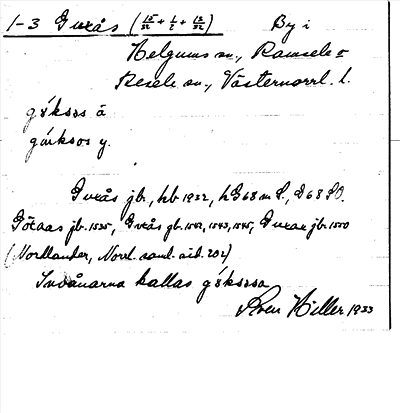 1-3 Guxås (15/32 + 1/2 + 12/32) By i
Helgums sn., Ramsele o
Resele sn., Västernorrl. l.
gɵ́ksɷs ä
gúksos y.
Guxås jb, hb 1932, hG68mS., G68SO.
Götaas jb. 1535, Guxås gb. 1542, 1543, 1545, Guxar jb. 1550
(Nordlander, Norrl. saml. sid. 202)
Invånarna kallas gɵ́ksɷsa
Sven Hiller 1933